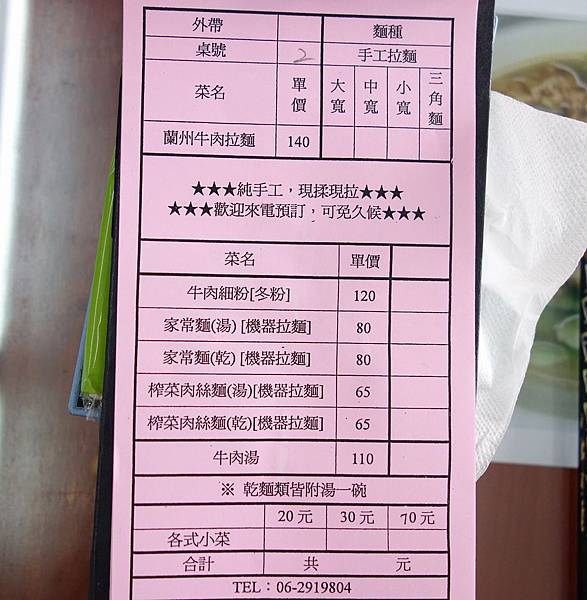 外帶 麵種
桌號 2 手工拉麵
菜名 單價 大寬 中寬 小寬 三角麵
蘭州牛肉拉麵 140
★★★純手工，現揉現拉★★★
★★★歡迎來電預訂，可免久候★★★
菜名 單價
牛肉細粉[冬粉] 120
家常麵(湯) [機器拉麵] 80
家常麵(乾) [機器拉麵] 80
榨菜肉絲麵(湯)[機器拉麵] 65
榨菜肉絲麵(乾)[機器拉麵] 65
牛肉湯 110
※ 乾麵類皆附湯一碗
20 元 30 元 70 元
各式小菜
合計 共 元
TEL：06-2919804